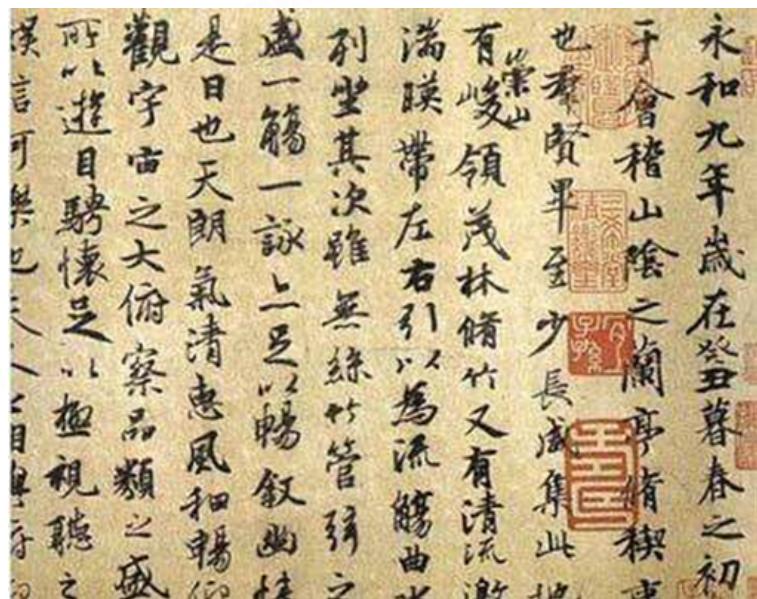 永和九年歲在癸丑暮春之初
于會稽山陰之蘭亭脩稧事
也羣賢畢至少長咸集此地
有崇山峻領茂林脩竹又有清流激
湍暎帶左右引以為流觴曲水
列坐其次雖無絲竹管弦之
盛一觴一詠亦足以暢敘幽情
是日也天朗氣清惠風和暢仰
觀宇宙之大俯察品類之盛
所以遊目騁懷足以極視聽之
娛信可樂也夫人之相與俯仰